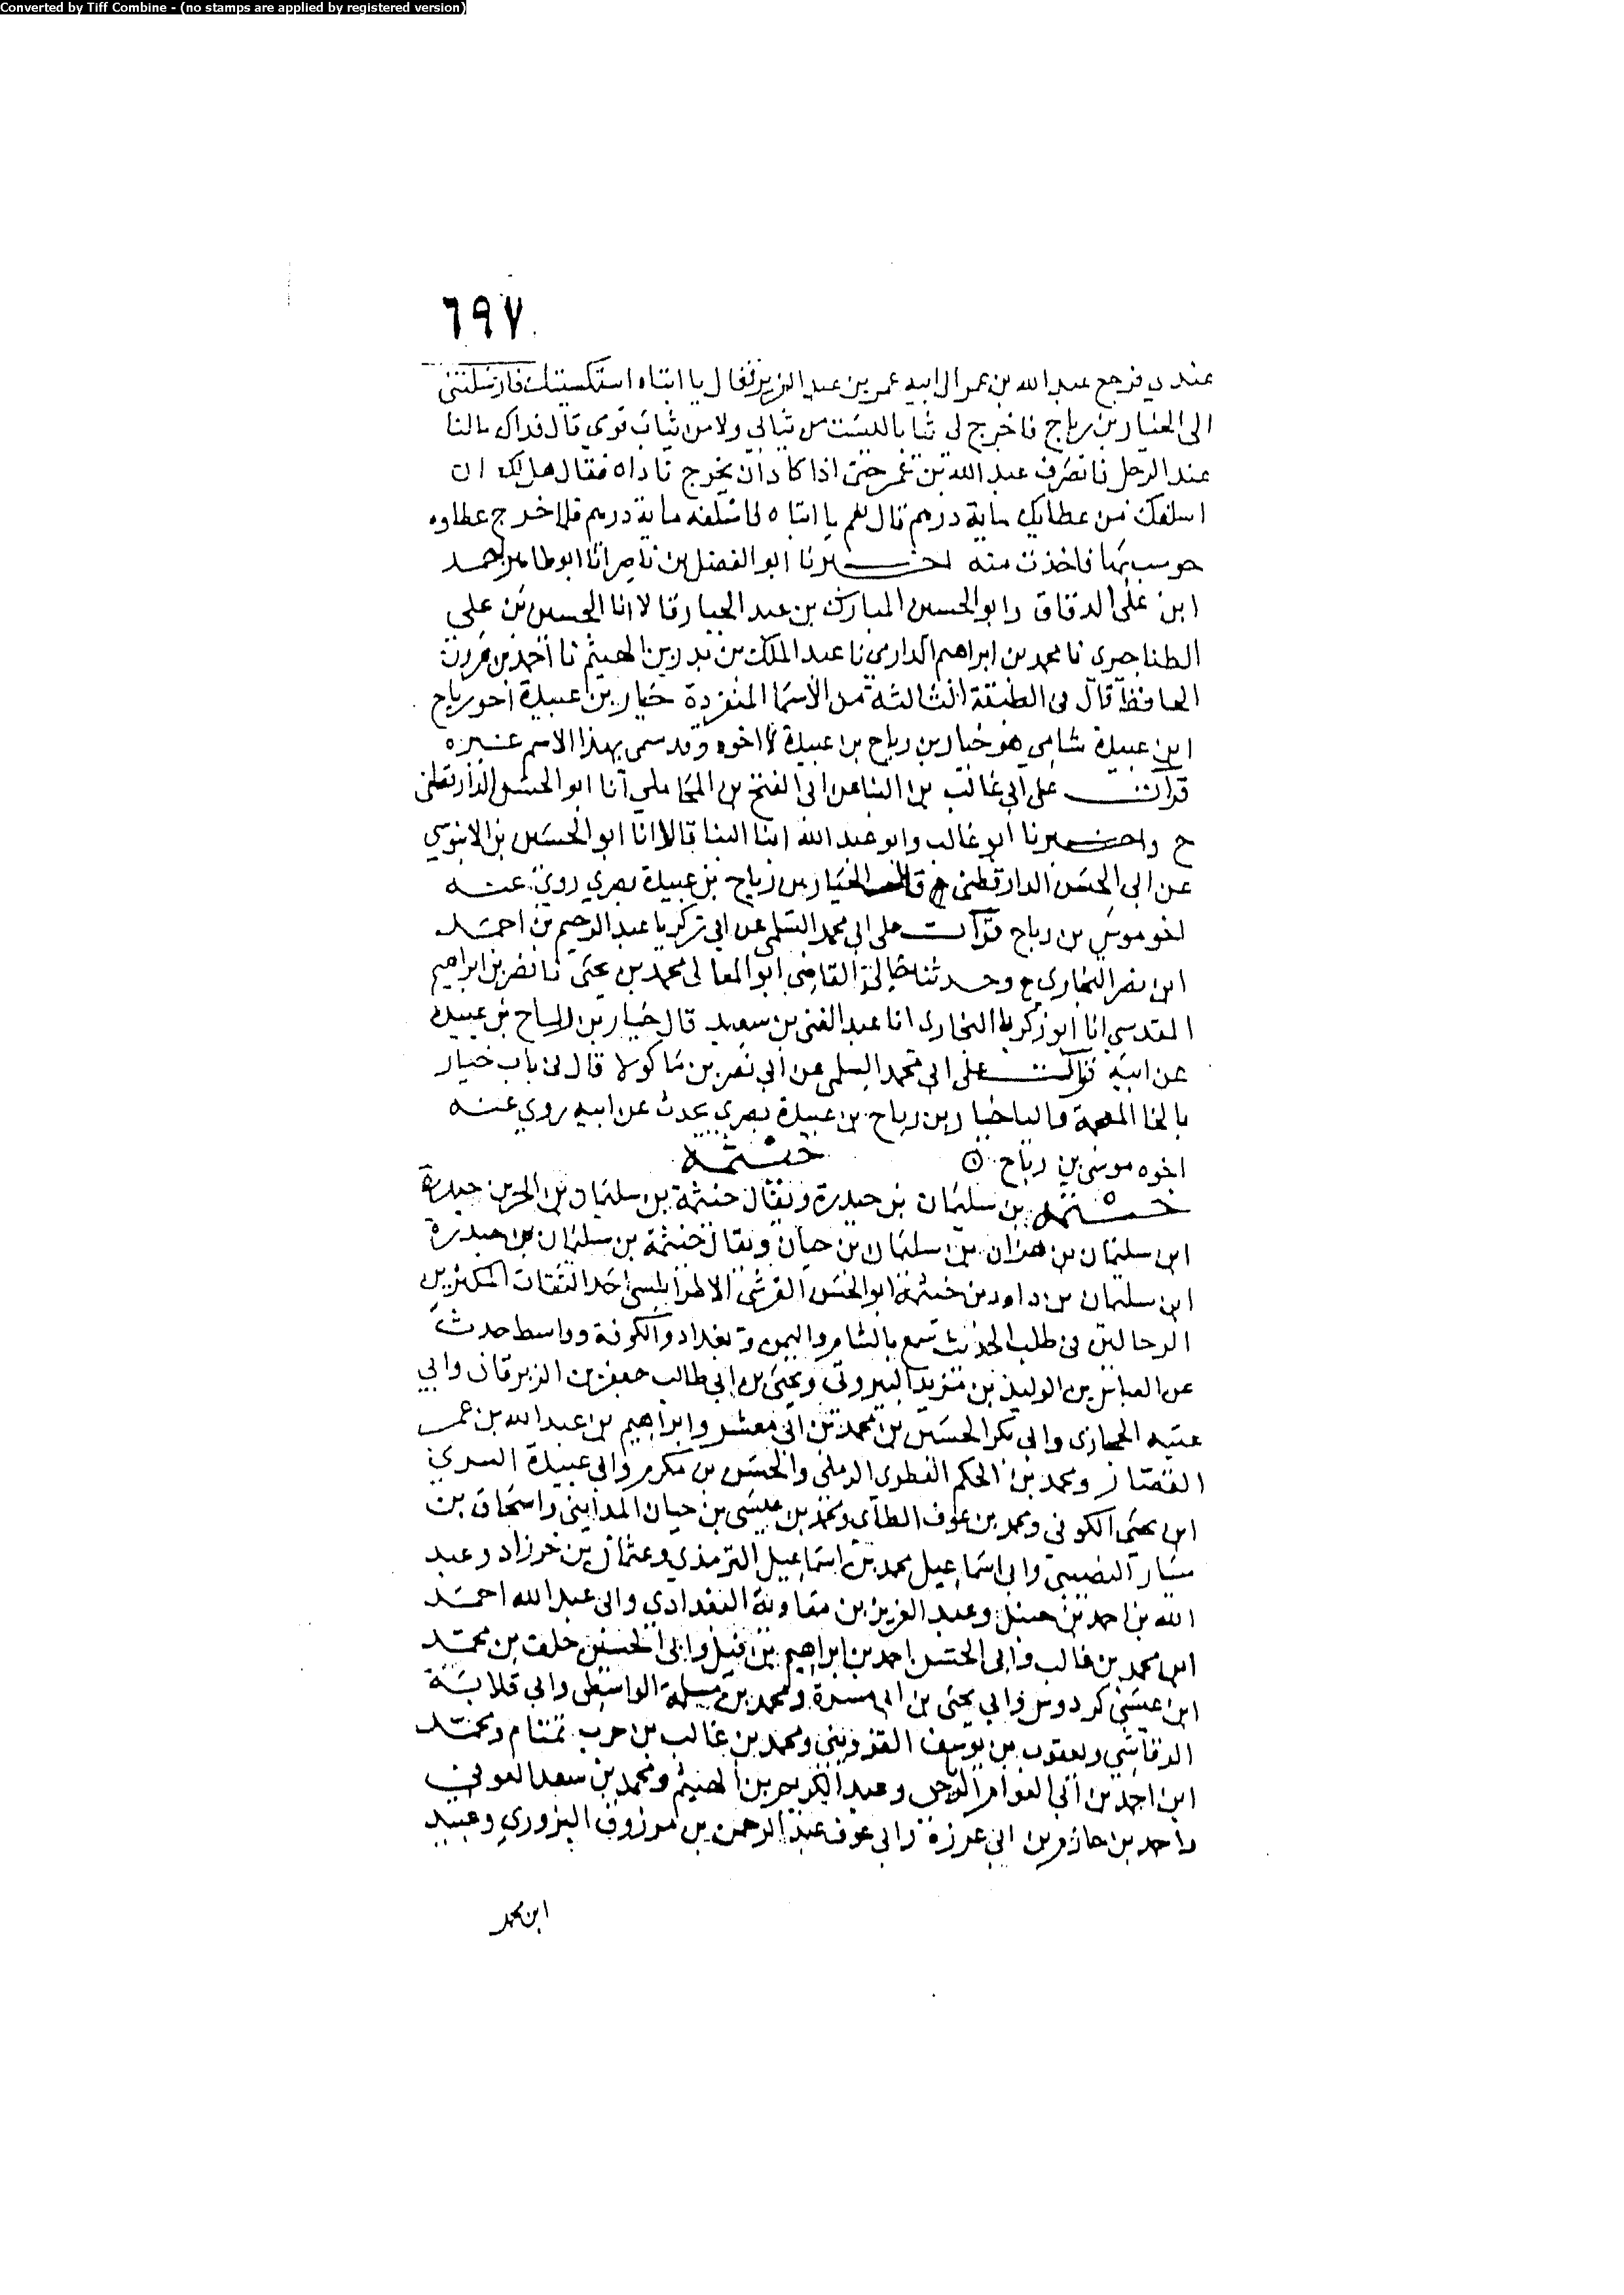 Converted by Tiff Combine - (no stamps are applied by registered version)
٦٩٧
عندي فرجع عبد الله بن عمر الى ابيه عمر بن عبد العزيز فقال يا ابتاه استكسيتك فارسلتني
الى الخيار بن رباح فاخرج لي ثيابا ليست من ثيابي ولا من ثياب قومي قال فذاك مالنا
عند الرجل فانصرف عبد الله بن عمر حتى اذا كاد ان يخرج ناداه فقال هل لك ان
اسلفك من عطايك ماية درهم قال نعم يا ابتاه فاسلفه ماية درهم فلما خرج عطاوه
حوسب بها فاخذت منه اخبرنا ابو الفضل بن ناصر انا ابو طاهر احمد
ابن علي الدقاق وابو الحسين المبارك بن عبد الجبار قالا انا الحسين بن علي
الطناجري نا محمد بن ابراهيم الدارمي نا عبد الملك بن بدر بن الهيثم نا احمد بن هرون
الحافظ قال في الطبقة الثالثة من الاسما المنفردة خيار بن عبيدة اخو رباح
ابن عبيدة شامي هو خيار بن رباح بن عبيدة لا اخوه وقد سمى بهذا الاسم غيره
قرات على ابي غالب بن البنا عن ابي الفتح بن المحاملي انا ابو الحسن الدارقطني
ح واخبرنا ابو غالب وابو عبد الله ابنا البنا قالا انا ابو الحسين بن الابنوسي
عن ابي الحسن الدارقطني قال الخيار بن رباح بن عبيدة بصري روى عنه
اخو موسى بن رباح قرات على ابي محمد السلمي عن ابي زكريا عبد الرحيم بن احمد
ابن نصر البخاري ح وحدثنا خالي القاضي ابو المعالي محمد بن يحيى نا نصر بن ابراهيم
المقدسي انا ابو زكريا البخاري انا عبد الغني بن سعيد قال خيار بن رباح بن عبيدة
عن ابيه قرات على ابي محمد السلمي عن ابي نصر بن ماكولا قال في باب خيار
بالخا المعجمة واليا خيار بن رباح بن عبيدة بصري يحدث عن ابيه روى عنه
اخوه موسى بن رباح
خيثمة
خيثمة بن سليمان بن حيدرة ويقال خيثمة بن سليمان بن الحر بن حيدرة
ابن سليمان بن هزان بن سليمان بن حيان ويقال خيثمة بن سليمان بن حيدرة
ابن سليمان بن داود بن خيثمة ابو الحسن القرشي الاطرابلسي احد الثقات المكثرين
الرحالين في طلب الحديث سمع بالشام واليمن وبغداد والكوفة وواسط حدث
عن العباس بن الوليد بن مزيد البيروتي ويحيى بن ابي طالب جعفر بن الزبرقان وابي
عتبه الحجازي وابي بكر الحسين بن محمد بن ابي معشر وابراهيم بن عبد الله بن عمر
القصار ومحمد بن الحكم القطري الرملي والحسن بن مكرم وابي عبيدة السري
ابن يحيى الكوفي ومحمد بن عوف الطاي ومحمد بن عيسى بن حيان المدايني واسحاق بن
سيار النصيبي وابي اسماعيل محمد بن اسماعيل الترمذي وعثمان بن خرزاد وعبد
الله بن احمد بن حنبل وعبد العزيز بن معاوية البغدادي وابي عبد الله احمد
ابن محمد بن غالب وابي الحسن احمد بن ابراهيم بن فيل وابي الحسين خلف بن محمد
ابن عيسى كردوس وابي يحيى بن ابي مسرة ومحمد بن مسلمة الواسطي وابي قلابة
الرقاشي ويعقوب بن يوسف القزويني ومحمد بن غالب بن حرب تمتام ومحمد
ابن احمد بن ابي العوام الرياحي وعبد الكريم بن الهيثم ومحمد بن سعد العوفي
واحمد بن حازم بن ابي غرزة وابي عوف عبد الرحمن بن مرزوق البزوري وعبيد
ابن محمد